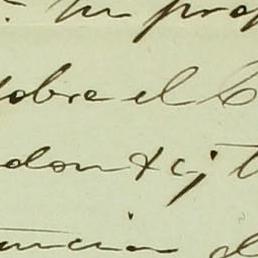 un prop
sobre el C
don &c; t
ancia d